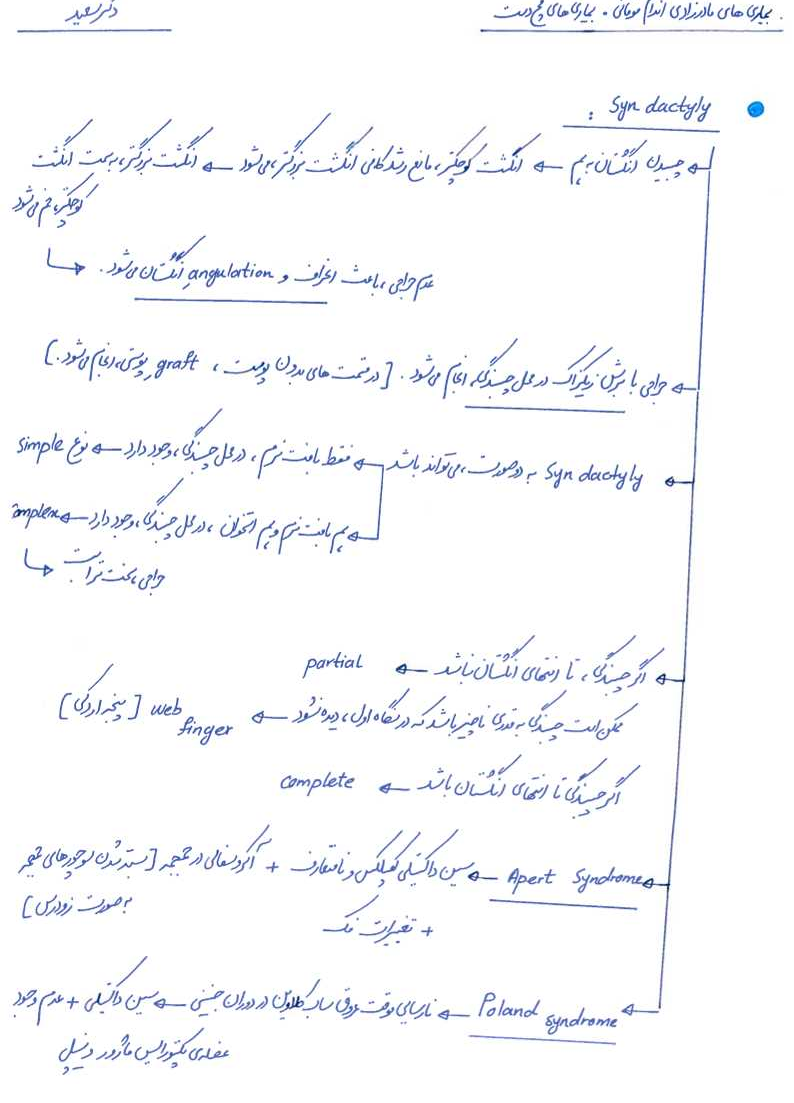 بیماری های مادرزادی اندام فوقانی . بیماری های مچ دست
دکتر سعید
Syn dactyly :
چسبیدن انگشتان به هم ← انگشت کوچکتر، مانع رشد کافی انگشت بزرگتر، می‌شود ← انگشت بزرگتر، به سمت انگشت
کوچکتر، خم می‌شود
عدم جراحی، باعث انحراف و angulation انگشتان می‌شود.
جراحی با برش زیگزاگ در محل چسبندگی، انجام می‌شود. [در قسمت های بدون پوست، graft پوستی، انجام می‌شود.]
Syn dactyly به دو صورت، می‌تواند باشد ← فقط بافت نرم، در محل چسبندگی، وجود دارد ← نوع simple
هم بافت نرم و هم استخوان، در محل چسبندگی، وجود دارد ← omplex
جراحی، سخت تر است
اگر چسبندگی، تا انتهای انگشتان نباشد ← partial
ممکن است چسبندگی به قدری ناچیز باشد که در نگاه اول، دیده نشود ← web finger [پنجه اردکی]
اگر چسبندگی تا انتهای انگشتان باشد ← complete
Apert Syndrome ← سین داکتیلی کمپلکس و نامتعارف + آکروسفالی در جمجمه [بسته شدن سوچورهای جمجمه
به صورت زودرس]
+ تغییرات فک
Poland syndrome ← نارسایی موقت عروق ساب کلاوین در دوران جنینی ← سین داکتیلی + عدم وجود
عضله‌ی پکتورالیس ماژور و نیپل